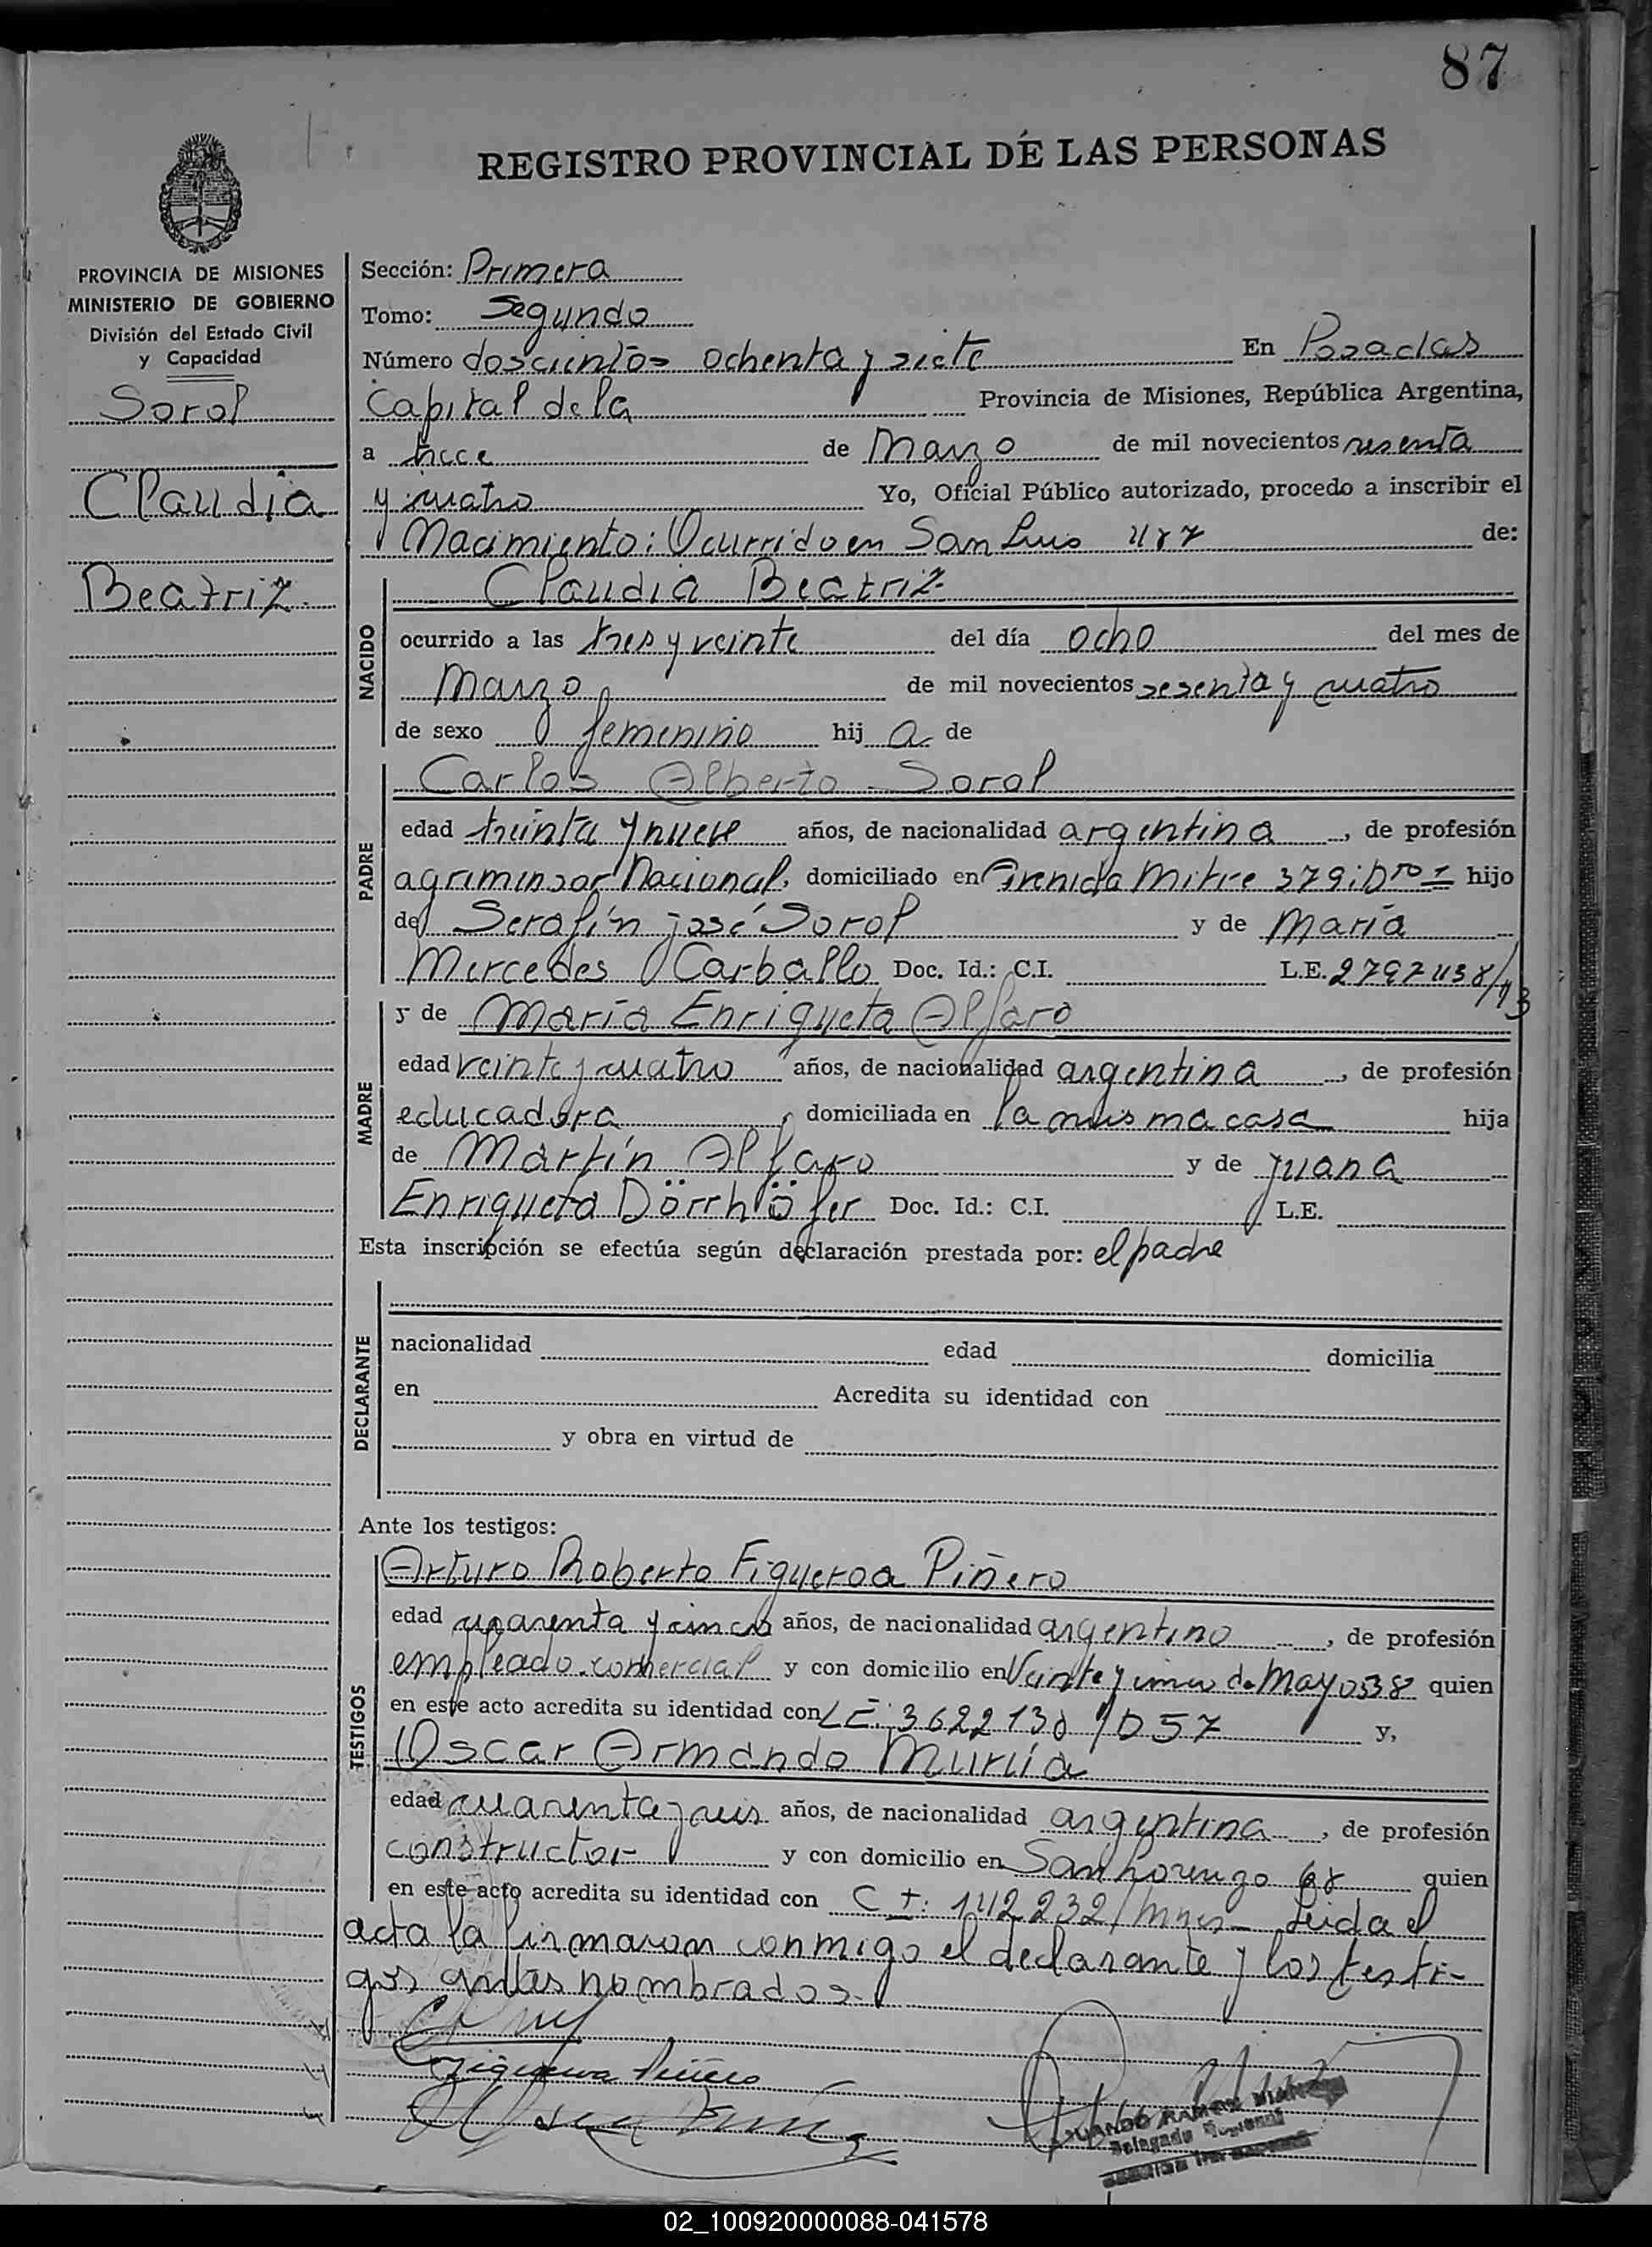 87
REGISTRO PROVINCIAL DE LAS PERSONAS
PROVINCIA DE MISIONES
MINISTERIO DE GOBIERNO
División del Estado Civil
y Capacidad
Sorol
Claudia
Beatriz
Sección: Primera
Tomo: Segundo
Número doscientos ochenta y siete En Posadas
Capital de la Provincia de Misiones, República Argentina,
a trece de Marzo de mil novecientos sesenta
y cuatro Yo, Oficial Público autorizado, procedo a inscribir el
Nacimiento: Ocurrido en San Luis de:
Claudia Beatriz
NACIDO
ocurrido a las tres y veinte del día ocho del mes de
Marzo de mil novecientos sesenta y cuatro
de sexo femenino hij a de
Carlos Alberto Sorol
PADRE
edad treinta y nueve años, de nacionalidad argentina, de profesión
agrimensor Nacional, domiciliado en Avenida Mitre 379: hijo
de Serafín josé Sorol y de María
Mercedes Carballo Doc. Id.: C.I. L.E. 2797438/43
MADRE
y de María Enriqueta Alfaro
edad veinte y cuatro años, de nacionalidad argentina, de profesión
educadora, domiciliada en la misma casa hija
de Martín Alfaro y de Juana
Enriqueta Dörrhöfer Doc. Id.: C.I. L.E.
Esta inscripción se efectúa según declaración prestada por: el padre
DECLARANTE
nacionalidad edad domicilia
en Acredita su identidad con
y obra en virtud de
Ante los testigos:
TESTIGOS
Arturo Roberto Figueroa Piñero
edad cuarenta y cinco años, de nacionalidad argentino, de profesión
empleado comercial y con domicilio en Veinte y cinco de Mayo 538 quien
en este acto acredita su identidad con L.E. y,
Oscar Armando Murúa
edad cuarenta y seis años, de nacionalidad argentina, de profesión
constructor y con domicilio en San Lorenzo 68 quien
en este acto acredita su identidad con C I: 142232/Mnes- Leida el
acta la firmaron conmigo el declarante y los testi-
gos antes nombrados.
Figueroa Piñero
RAMON
Delegado
02_100920000088-041578